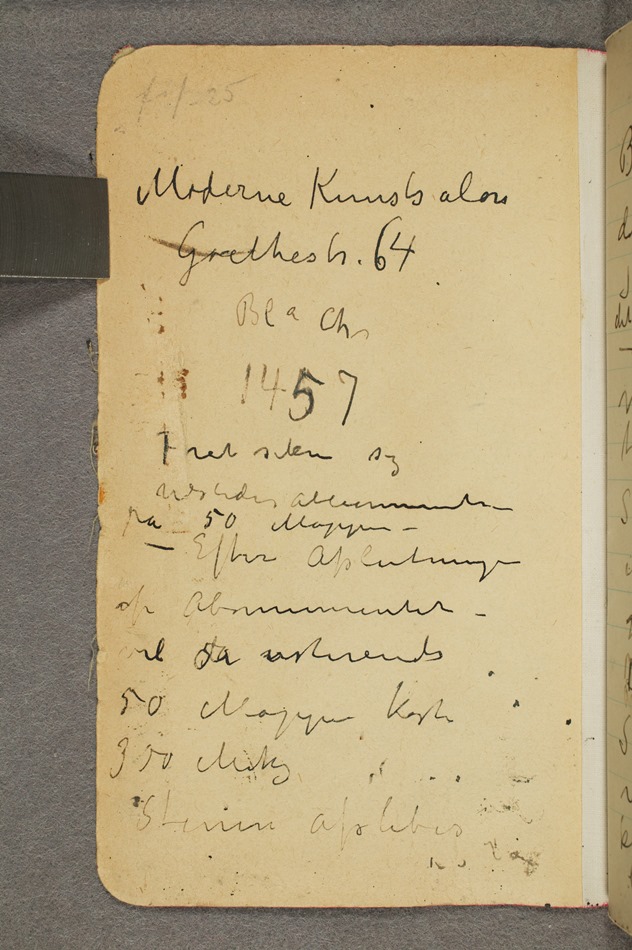 Moderne Kunstsalon
Goethestr. 64
Bla Ch
1457
Foretaken sig
Abonnementer
på 50 Mapper –
– Efter Afslutningen
af Abonnementet –
vil da resterende
50 Mapper koste
300 Mark
Stenene afslibes